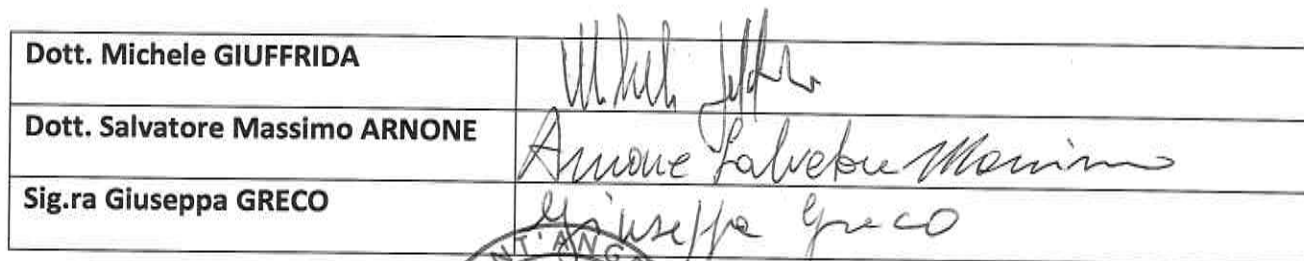 Dott. Michele GIUFFRIDA Michele Giuffrida
Dott. Salvatore Massimo ARNONE Arnone Salvatore Massimo
Sig.ra Giuseppa GRECO Giuseppa Greco
NT'ANG